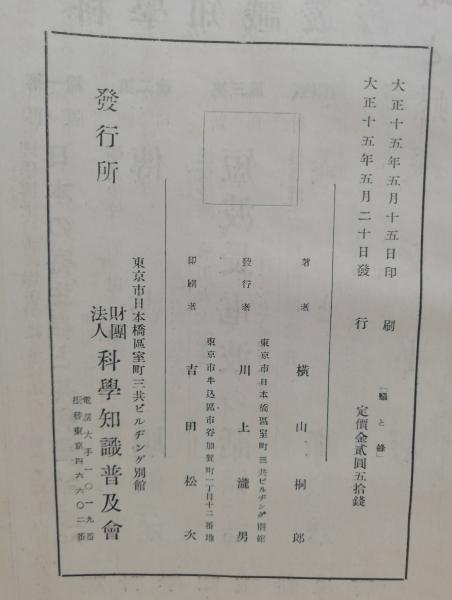 大正十五年五月十五日印刷
大正十五年五月二十日發行
「蟻と蜂」
定價金貳圓五拾錢
著者 橫山桐郎
東京市日本橋區室町三共ビルヂング別館
發行者 川上瀧男
東京市牛込區市谷加賀町一丁目十二番地
印刷者 吉田松次
發行所
東京市日本橋區室町三共ビルヂング別館
財團法人 科學知識普及會
電話大手一〇一九番
振替東京四六六〇二番